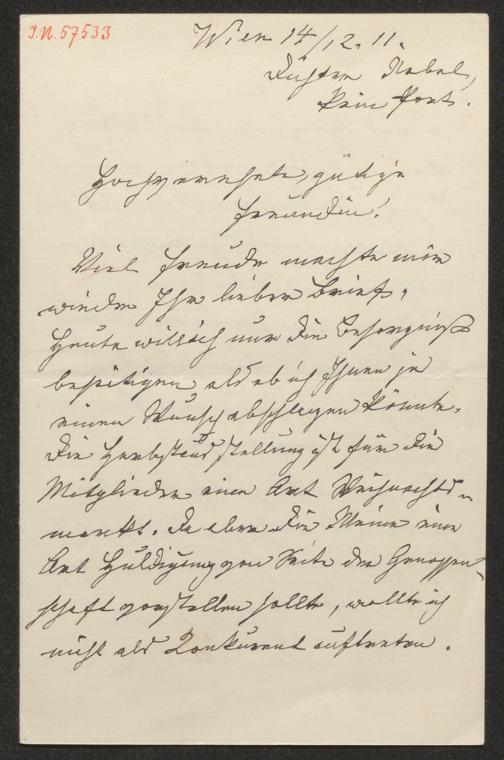 J.N. 57533
Wien 14/12. 11.
Düstrer Nebel,
kein Frost.
Hochverehrte, gütige
Freundin!
Viel Freude machte mir
wieder Ihr lieber Brief.
Heute will ich nur die Besorgniß
beseitigen als ob ich Ihnen je
einen Wunsch abschlagen könnte.
Die Herbstausstellung ist für die
Mitglieder eine Art Weihnachts-
markt. Da aber die Meine eine
Art Huldigung von Seite der Genossen-
schaft vorstellen sollte, wollte ich
nicht als Konkurent auftreten.